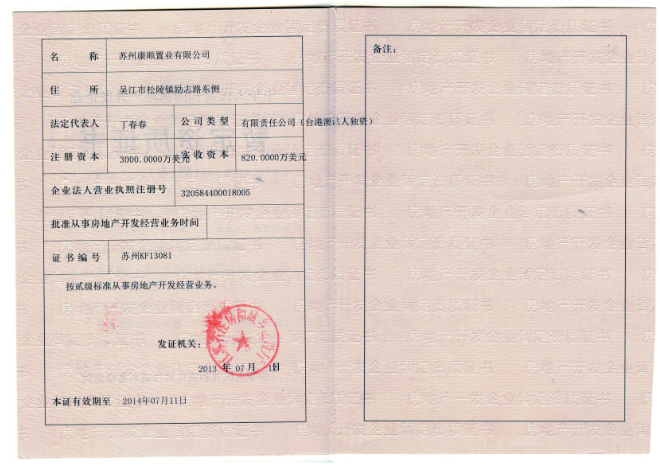 名 称 苏州康顺置业有限公司
住 所 吴江市松陵镇励志路东侧
法定代表人 丁春春 公司类型 有限责任公司（台港澳法人独资）
注册资本 3000.0000万美元 实收资本 820.0000万美元
企业法人营业执照注册号 320584400018005
批准从事房地产开发经营业务时间
证书编号 苏州KF13081
按贰级标准从事房地产开发经营业务。
发证机关：
2013 年 07 月 1日
本证有效期至 2014年07月11日
备注：